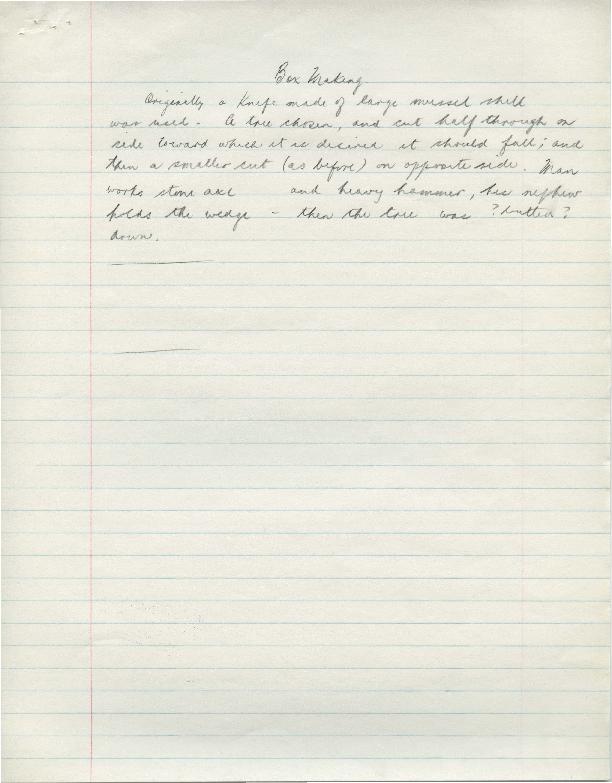 Box Making.
Originally a knife made of large mussel shell
was used. A tree chosen, and cut half through on
side toward which it is desired it should fall; and
then a smaller cut (as before) on opposite side. Man
works stone axe and heavy hammer, his nephew
holds the wedge - then the tree was ? butted ?
down.